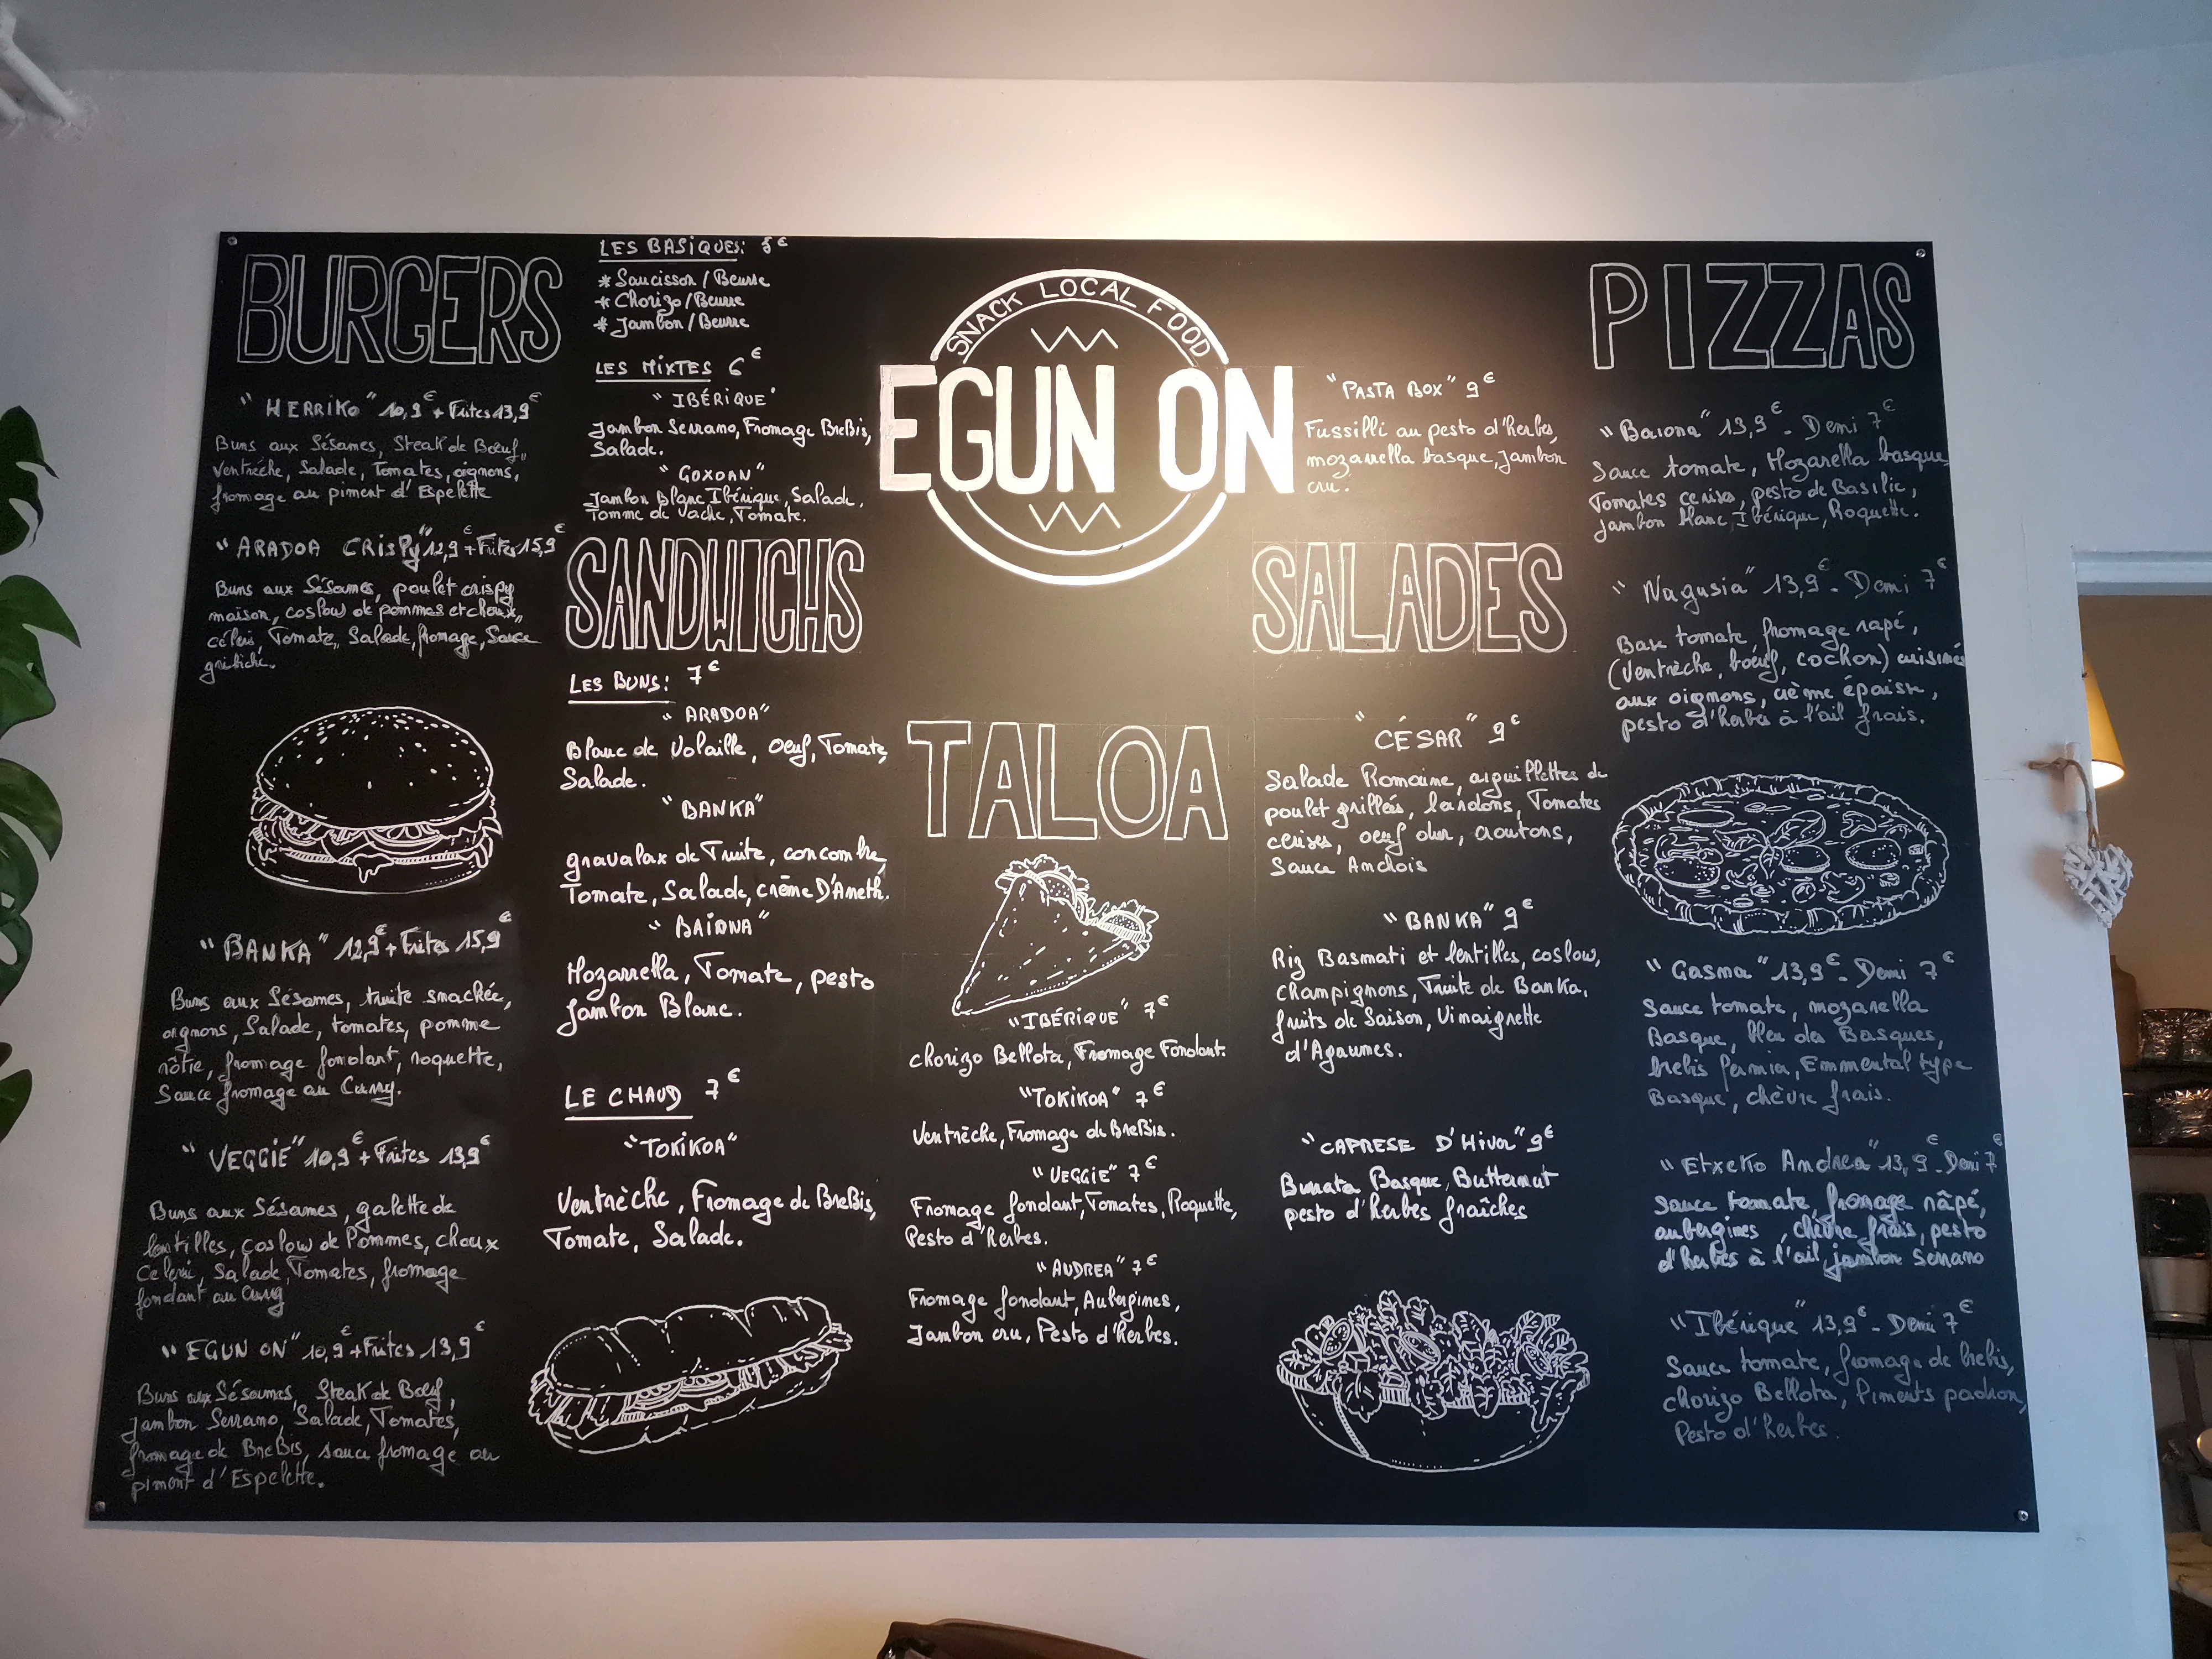 BURGERS
"HERRIKO" 10,9€ + Frites 13,9€
Buns aux Sésames, Steak de Bœuf,
Ventrèche, Salade, Tomates, oignons,
fromage au piment d'Espelette
"ARADOA CRISPY" 12,9€ + Frites 15,9€
Buns aux Sésames, poulet crispy
maison, coslow de pommes et choux,
céleri, Tomate, Salade, fromage, Sauce
gribiche.
"BANKA" 12,9€ + Frites 15,9€
Buns aux Sésames, truite snackée,
oignons, Salade, tomates, pomme
rôtie, fromage fondant, roquette,
Sauce fromage au Curry.
"VEGGIE" 10,9€ + Frites 13,9€
Buns aux Sésames, galette de
lentilles, coslow de Pommes, choux
Celeri, Salade, Tomates, fromage
fondant au Curry
"EGUN ON" 10,9€ + Frites 13,9€
Buns aux Sésames, Steak de Bœuf,
Jambon Serrano, Salade, Tomates,
fromage de BreBis, sauce fromage au
piment d'Espelette.
LES BASiQUES: €
* Saucisson / Beurre
* Chorizo / Beurre
* Jambon / Beurre
LES MiXTES 6€
"IBÉRIQUE"
Jambon Serrano, Fromage BreBis,
Salade.
"GOXOAN"
Jambon Blanc Ibérique, Salade,
Tomme de Vache, Tomate.
SANDWICHS
LES BUNS: 7€
"ARADOA"
Blanc de Volaille, oeuf, Tomate,
Salade.
"BANKA"
gravalax de Truite, concombre,
Tomate, Salade, crème D'Aneth.
"BAiONA"
Mozarrella, Tomate, pesto
Jambon Blanc.
LE CHAUD 7€
"TOKIKOA"
Ventrèche, Fromage de BreBis,
Tomate, Salade.
SNACK LOCAL FOOD
EGUN ON
TALOA
"IBÉRIQUE" 7€
Chorizo Bellota, Fromage Fondant.
"TOKIKOA" 7€
Ventrèche, Fromage de BreBis.
"VEGGIE" 7€
Fromage fondant, Tomates, Roquette,
Pesto d'herbes.
"AUDREA" 7€
Fromage fondant, Aubergines,
Jambon cru, Pesto d'herbes.
"PASTA BOX" 9€
Fussilli au pesto d'herbes,
mozarrella basque, Jambon
cru.
SALADES
"CÉSAR" 9€
Salade Romaine, aiguillettes de
poulet grillées, lardons, Tomates
cerises, oeuf dur, croutons,
Sauce Anchois
"BANKA" 9€
Riz Basmati et lentilles, coslow,
champignons, Truite de Banka,
fruits de Saison, Vinaigrette
d'Agrumes.
"CAPRESE D'Hiver" 9€
Burrata Basque, Butternut
pesto d'herbes fraîches
PIZZAS
"Baiona" 13,9€ - Demi 7€
Sauce tomate, Mozarella basque
Tomates cerises, pesto de Basilic,
Jambon blanc Ibérique, Roquette.
"Nagusia" 13,9€ - Demi 7€
Base tomate, fromage rapé,
(Ventrèche, boeuf, cochon) cuisinés
aux oignons, crème épaisse,
pesto d'herbes à l'ail frais.
"Gasna" 13,9€ - Demi 7€
Sauce tomate, mozarella
Basque, bleu des Basques,
brebis Pernia, Emmental type
Basque, chèvre frais.
"Etxeko Andrea" 13,9€ - Demi 7€
Sauce tomate, fromage râpé,
aubergines, chèvre frais, pesto
d'herbes à l'ail, jambon Serrano
"Ibérique" 13,9€ - Demi 7€
Sauce tomate, fromage de brebis,
chorizo Bellota, Piments padron,
Pesto d'herbes.